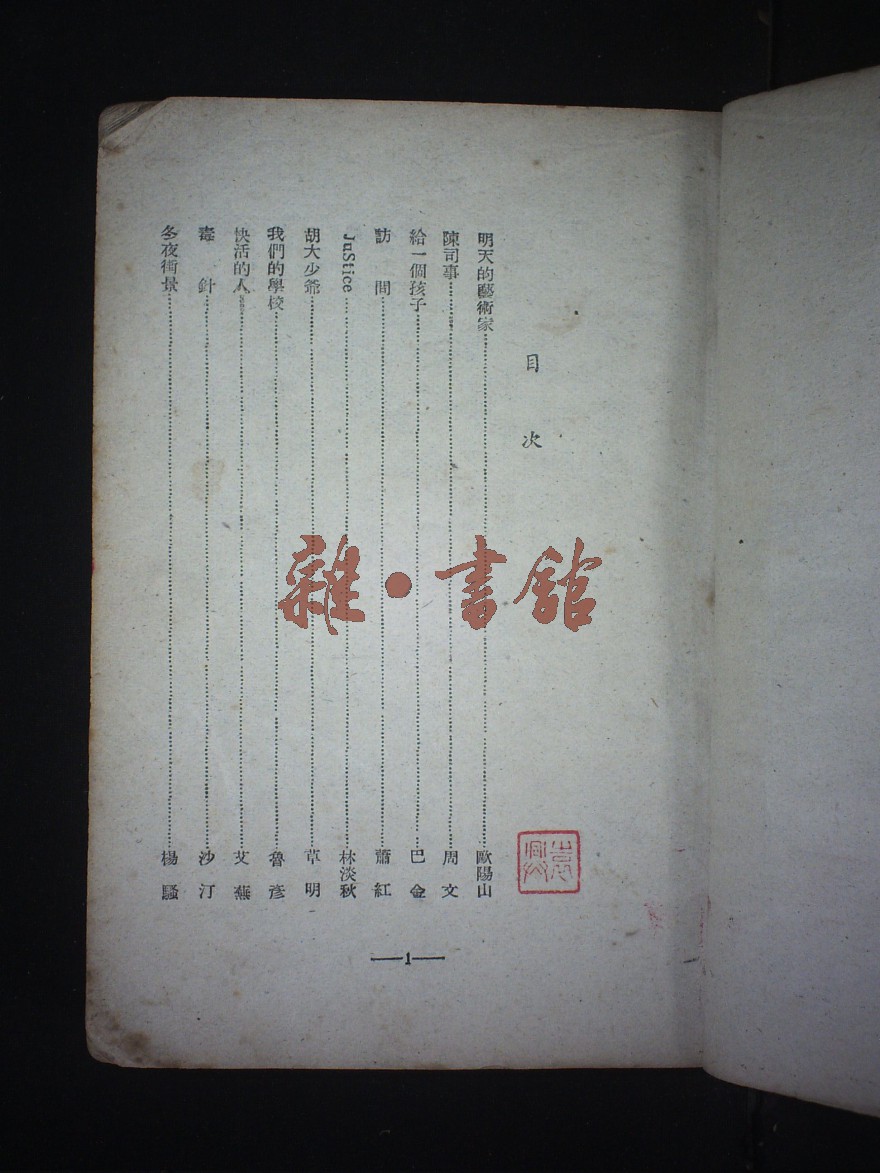 目次
明天的藝術家……歐陽山
陳司事……周文
給一個孩子……巴金
訪問……蕭紅
JuStice……林淡秋
胡大少爺……草明
我們的學校……魯彥
快活的人……艾蕪
毒針……沙汀
冬夜街景……楊騷
—1—
雜·書館